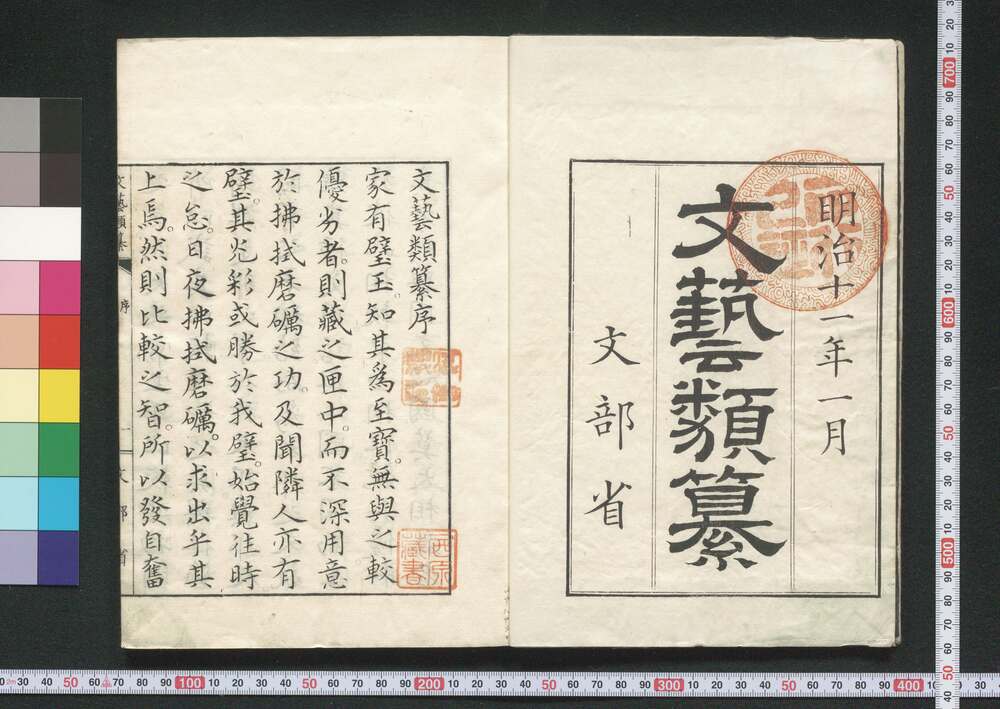 明治十一年一月
文藝類纂
文部省
文藝類纂序
家有璧玉。知其爲至寶。無與之較
優劣者。則藏之匣中。而不深用意
於拂拭磨礪之功。及聞隣人亦有
璧。其光彩或勝於我璧。始覺往時
之怠。日夜拂拭磨礪。以求出乎其
上焉。然則比較之智。所以發自奮
文藝類纂 序 一 文部省
西原
藏書